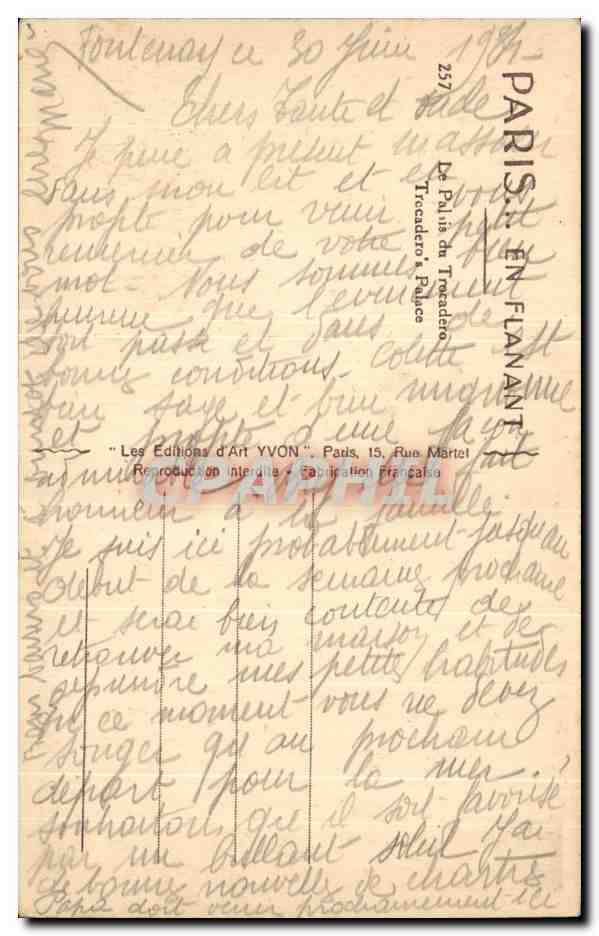 Fontenay ce 30 Juin 19
Chers Tante et
Je peux à présent
dans mon lit et
profite pour venir
remercier de votre petit
mot. Nous sommes bien
heureux que l'évènement
soit passé et dans de
bonnes conditions. Colette est
bien sage et bien mignonne
et profite d'une façon
fait
honneur à la famille.
Je suis ici probablement jusqu'au
début de la semaine prochaine
et serai bien contente de
retrouver ma maison et de
reprendre mes petites habitudes
En ce moment vous ne devez
songer qu'au prochain
départ pour la mer. ?
souhaitons qu'il soit favorisé
par un brillant soleil J'ai
de bonnes nouvelles de Chartres
Papa doit venir prochainement ici
PARIS... EN FLANANT
257 Le Palais du Trocadero
Trocadero's Palace
" Les Editions d'Art YVON ". Paris, 15, Rue Martel
Reproduction interdite - Fabrication Française
CPAPHIL